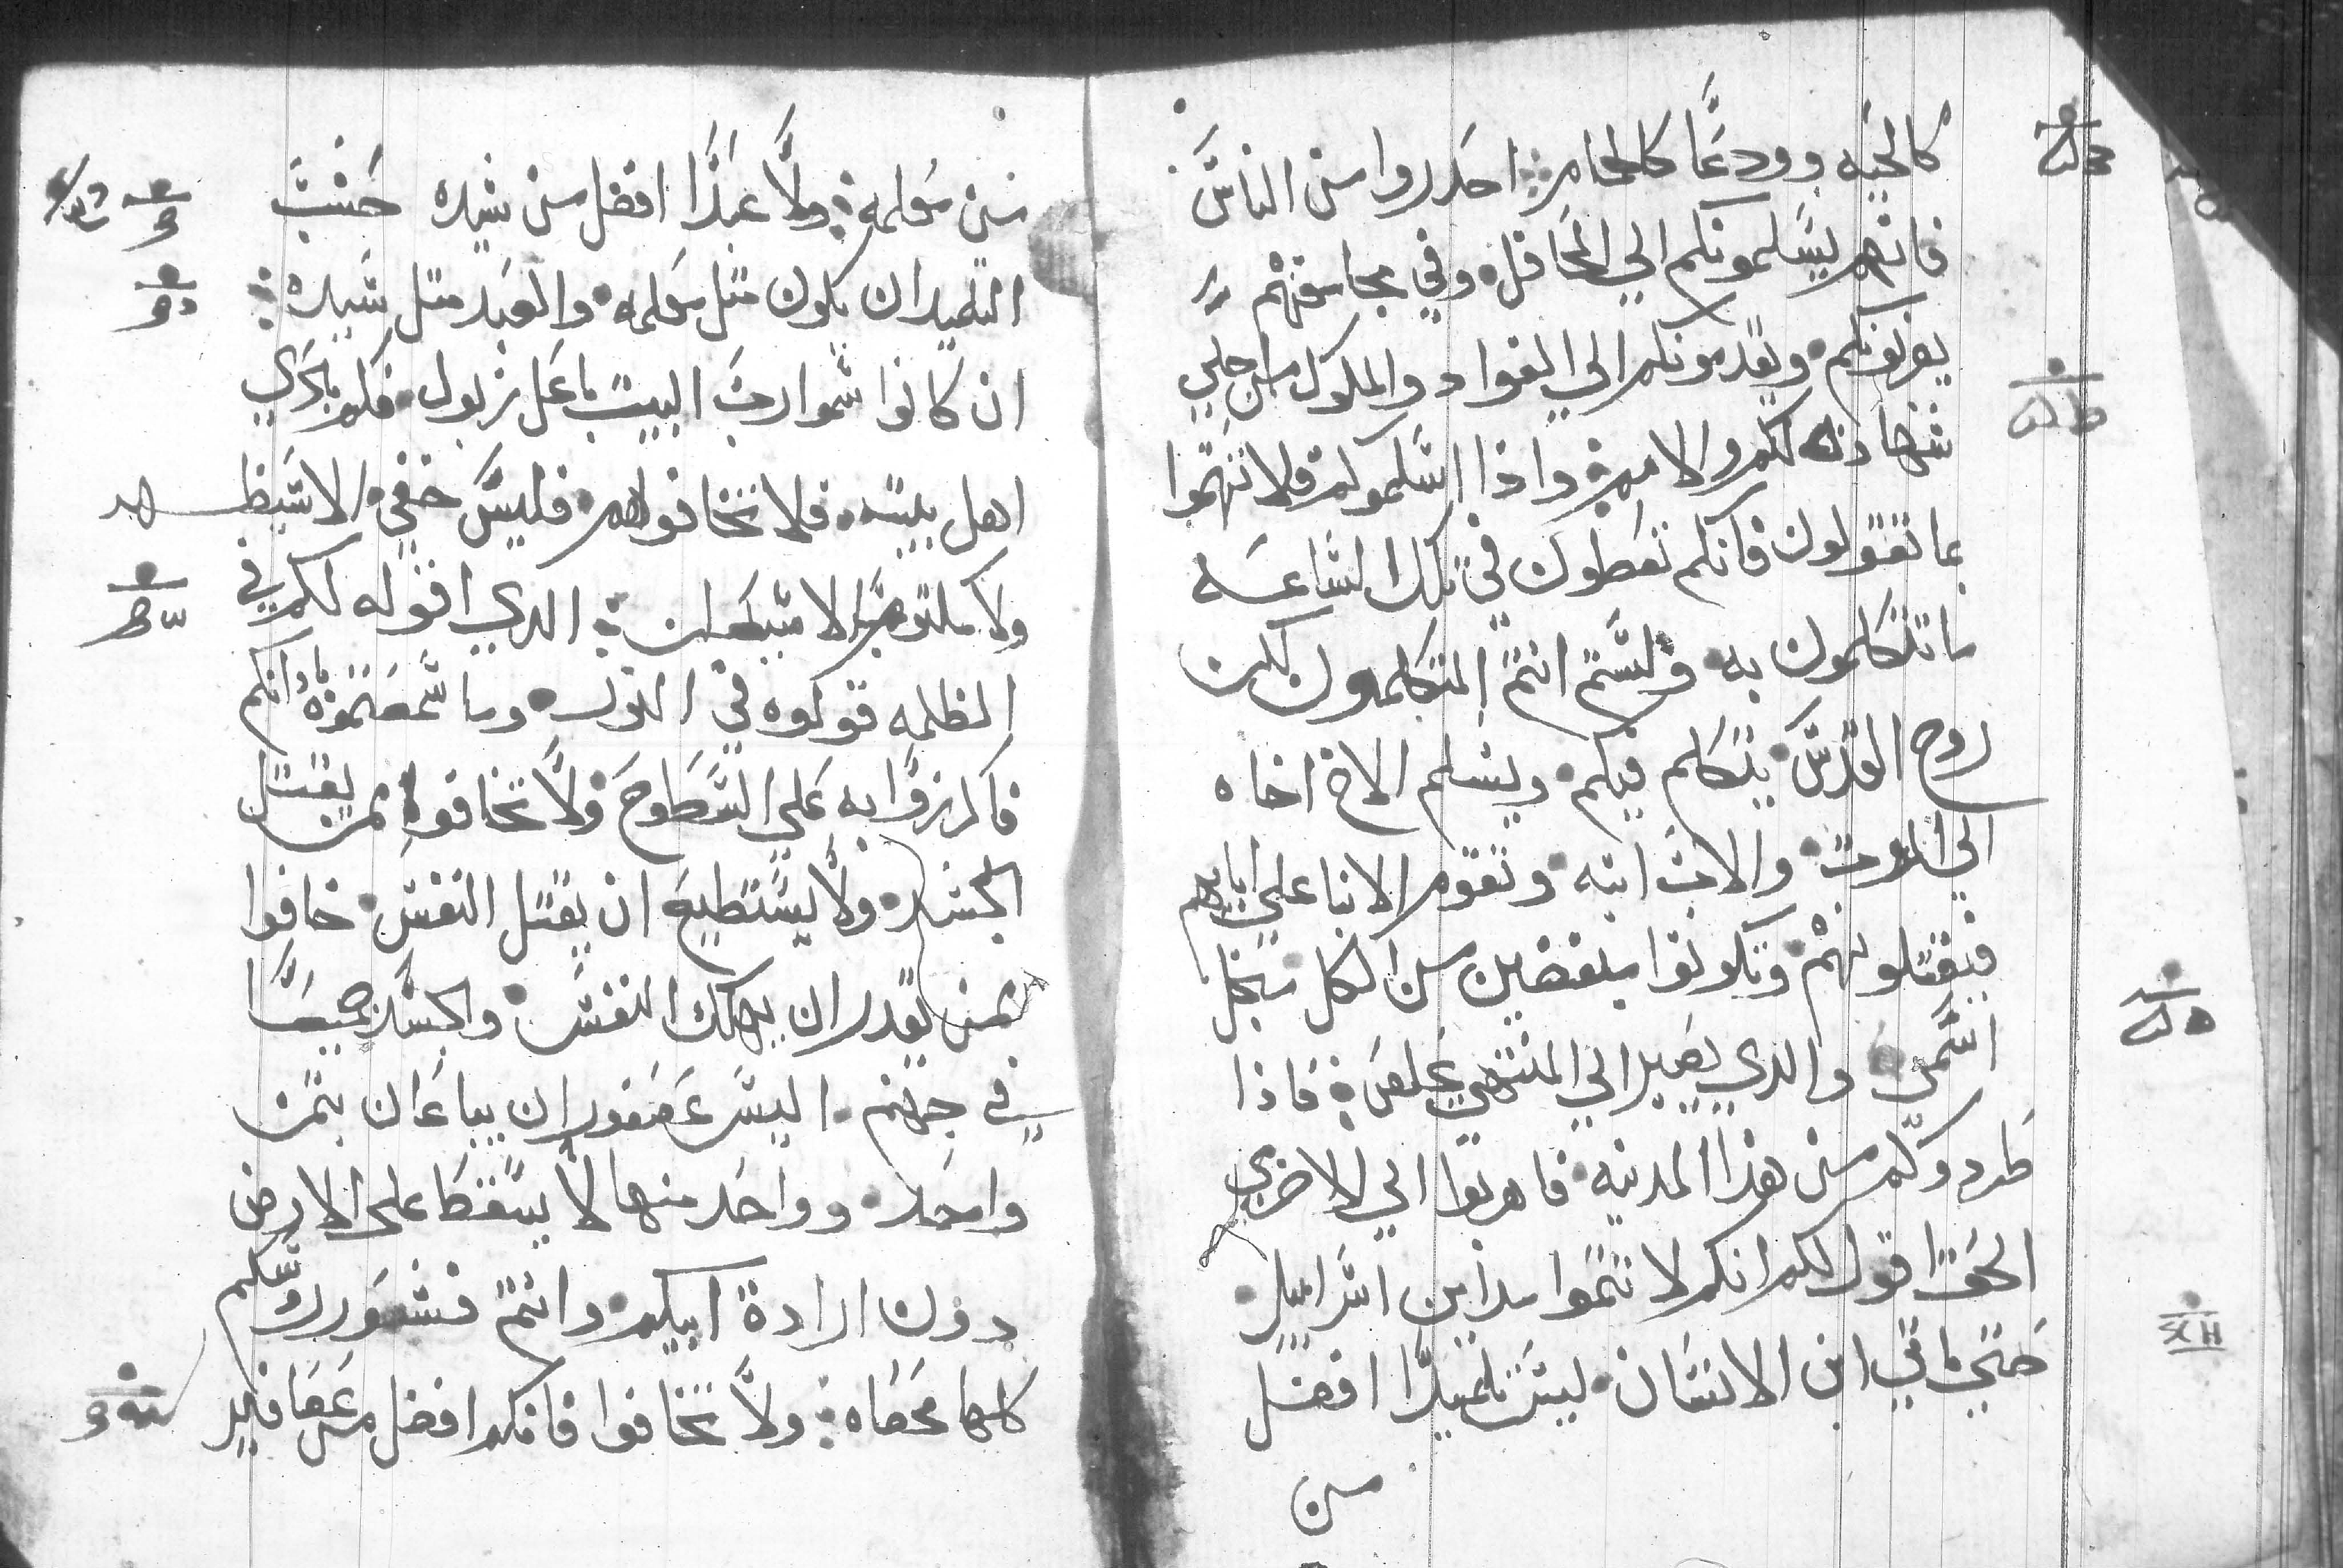 كالحيه وودعًا كالحمام احدروا من الناس
فانهم يسلمونكم الي المحافل وفي مجامعهم
يضربونكم ويقدمونكم الي القواد والملوك من اجلي
شهادة لكم وللامم واذا اسلموكم فلا تهتموا
بما تقولون فانكم تعطون في تلك الساعه
ما تتكلمون به ولستم انتم المتكلمون لكن
روح القدس يتكلم فيكم ويسلم الاخ اخاه
الي الموت والاب ابنه وتقوم الابنا علي ابايهم
فيقتلونهم وتكونوا مبغضين من الكل من اجل
اسمي والدي يصبر الي المنتهي يخلص فاذا
طردوكم من هذه المدينه فاهربوا الي الاخري
الحق اقول لكم انكم لا تتموا مداين اسراييل
حتي ياتي ابن الانسان ليس تلميدًا افضل
من
من معلمه ولا عبدًا افضل من سيده حسب
التلميد ان يكون متل معلمه والعبد متل سيده
ان كانوا سموا رب البيت باعل زبول فكم بالحري
اهل بيته فلا تخافوهم فليس خفي الا سيظهر
ولا مكتوم الا سيعلن الدي اقوله لكم في
الظلمه قولوه في النور وما سمعتموه بادانكم
فاكرزوا به علي السطوح ولا تخافوا ممن يقتل
الجسد ولا يستطيع ان يقتل النفس خافوا
ممن يقدر ان يهلك النفس والجسد جميعًا
في جهنم اليس عصفوران يباعان بتمن
واحد وواحد منهما لا يسقط علي الارض
دون ارادة ابيكم وانتم فشعور روسكم
كلها محصاه ولا تخافوا فانكم افضل من عصافير